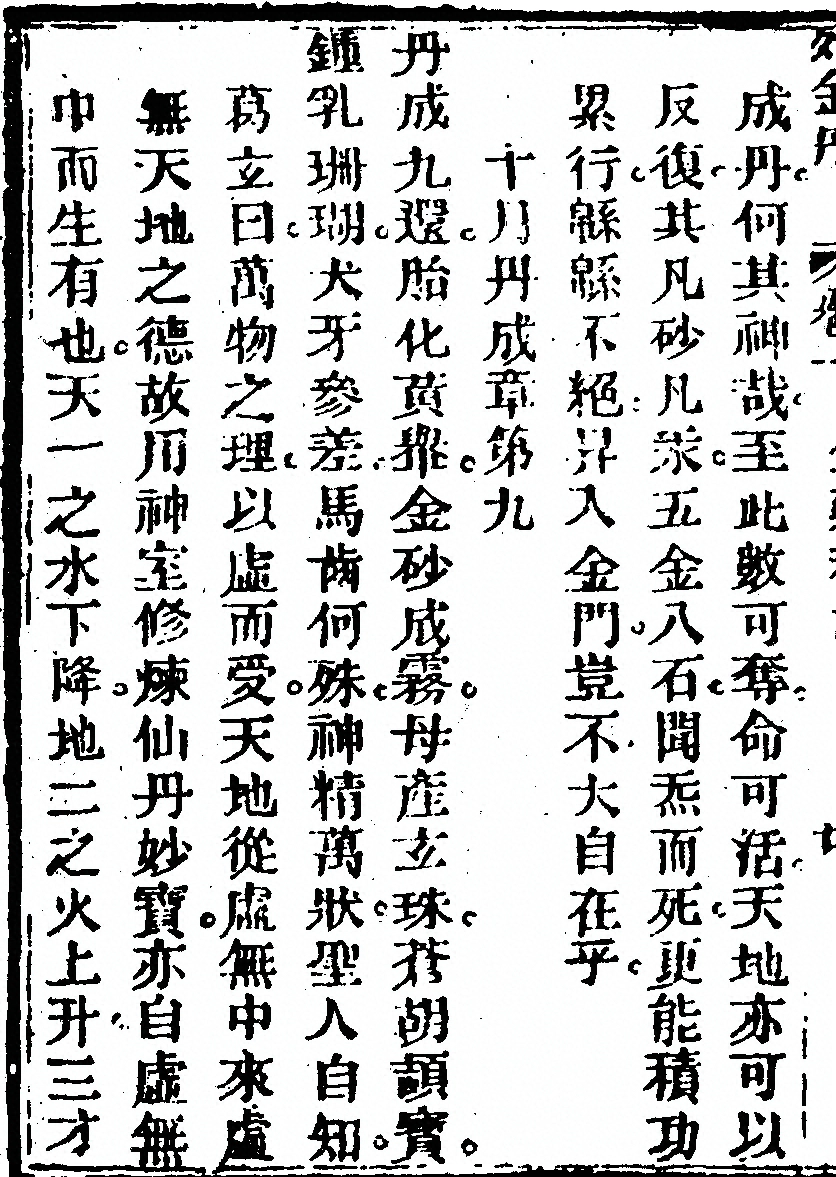 成丹何其神哉至此數可奪命可活天地亦可以
反復其凡砂凡汞五金八石聞炁而死更能積功
累行緜緜不絕昇入金門豈不大自在乎
十月丹成章第九
丹成九還胎化黃轝金砂成霧母產玄珠蒼胡顛寶
鍾乳珊瑚犬牙參差馬齒何殊神精萬狀聖人自知
葛玄曰萬物之理以虛而受天地從虛無中來虛
無天地之德故用神室修煉仙丹妙寶亦自虛無
中而生有也天一之水下降地二之火上升三才